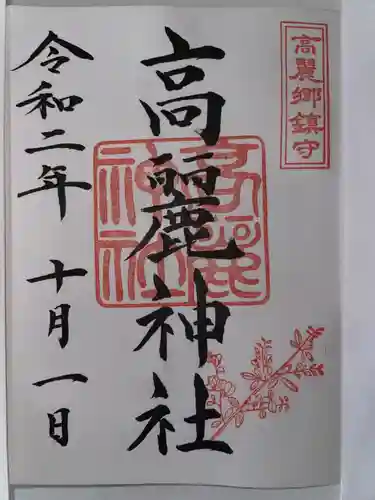 高麗郷鎮守
高麗神社
高麗神社
令和二年 十月一日